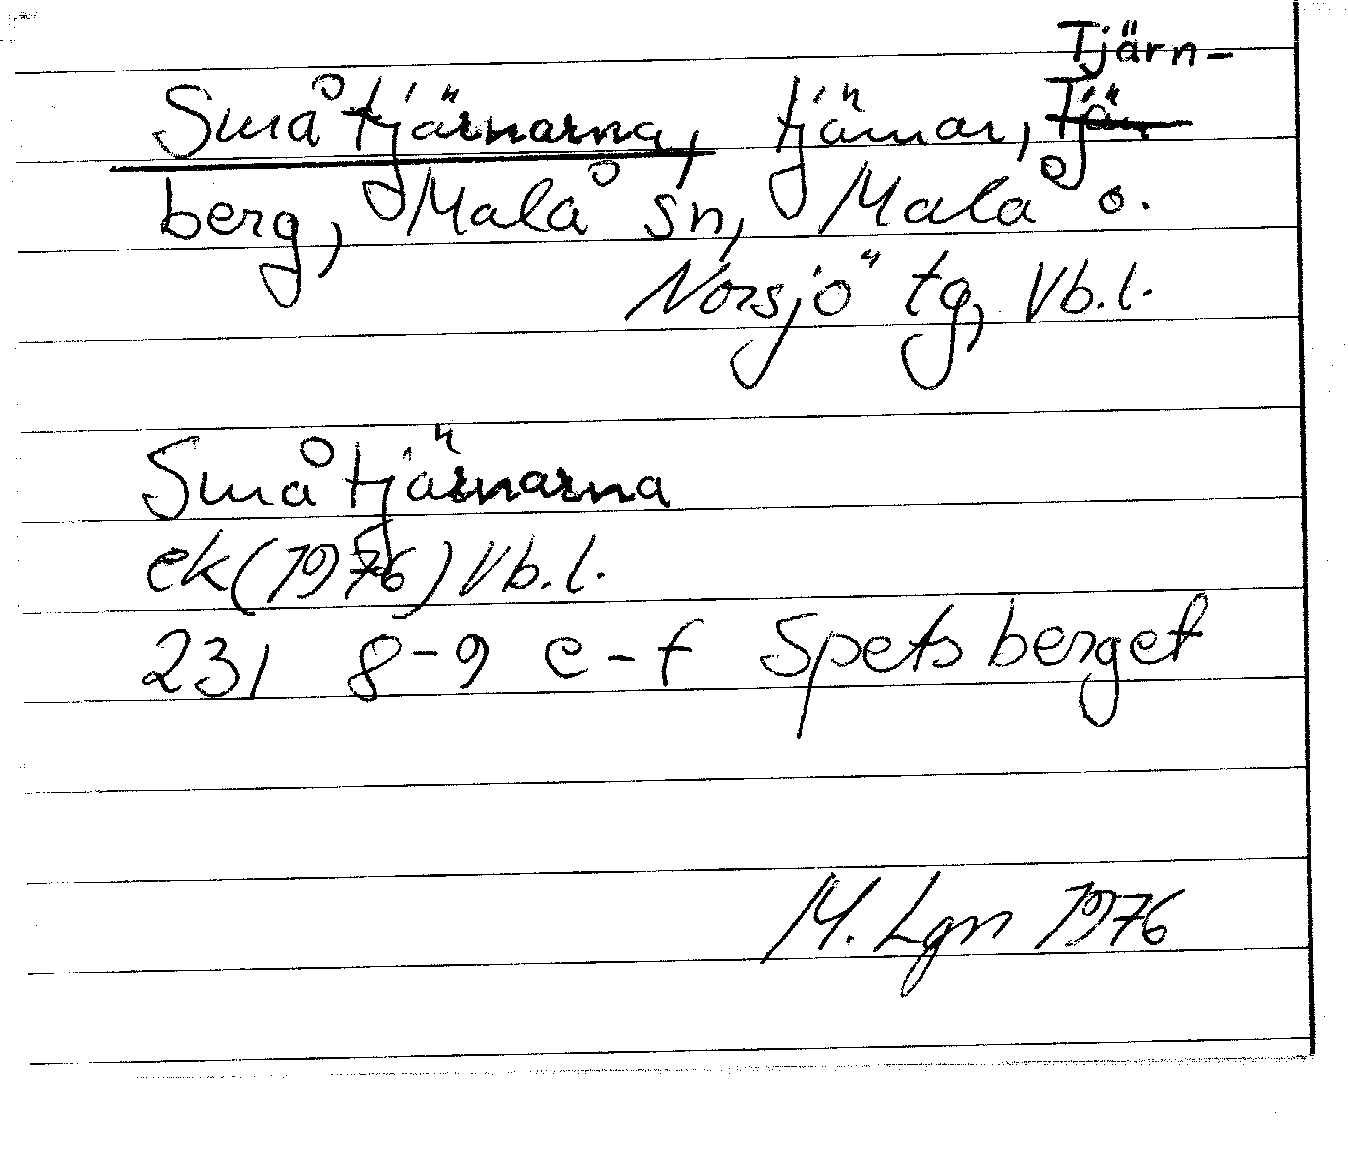 Tjärn-
Småtjärnarna, tjärnar, Tjän
berg, Malå sn, Malå o.
Norsjö tg, Vb.l.
Småtjärnarna
ek (1976) Vb.l.
23I 8-9 e-f Spetsberget
M. Lgn 1976